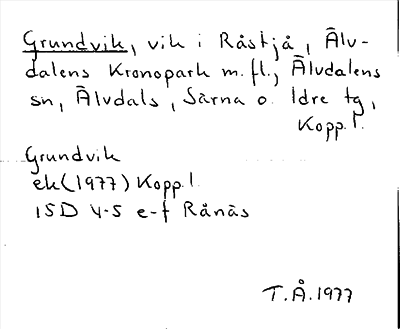 Grundvik, vik i Råstjå, Älv-
dalens Kronopark m.fl., Älvdalens
sn, Älvdals, Särna o. Idre tg,
Kopp.l.
Grundvik
ek(1977) Kopp.l.
15D 4-5 e-f Rånäs
T.Å.1977